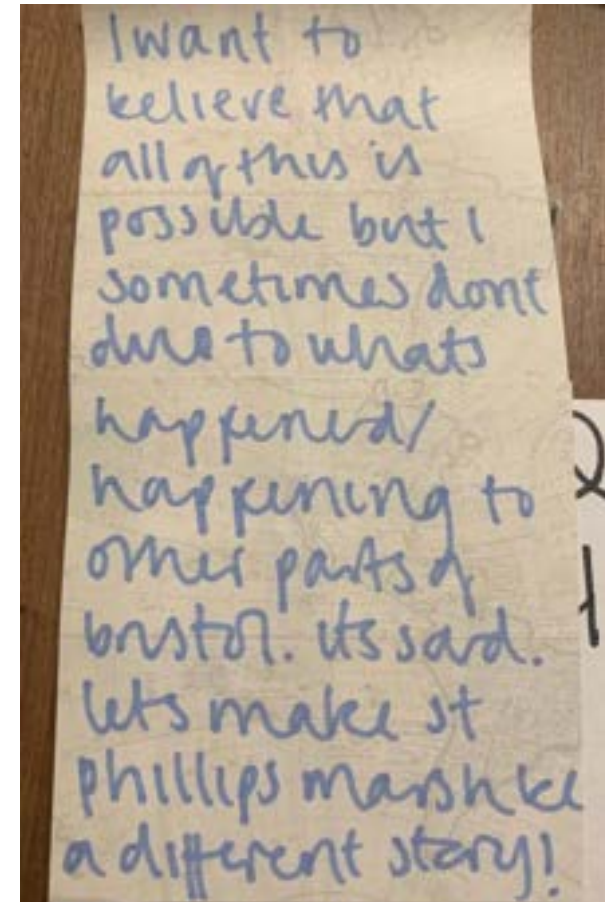 I want to
believe that
all of this is
possible but I
sometimes dont
due to whats
happened/
happening to
other parts of
bristol. its sad.
lets make st
phillips marsh be
a different story!